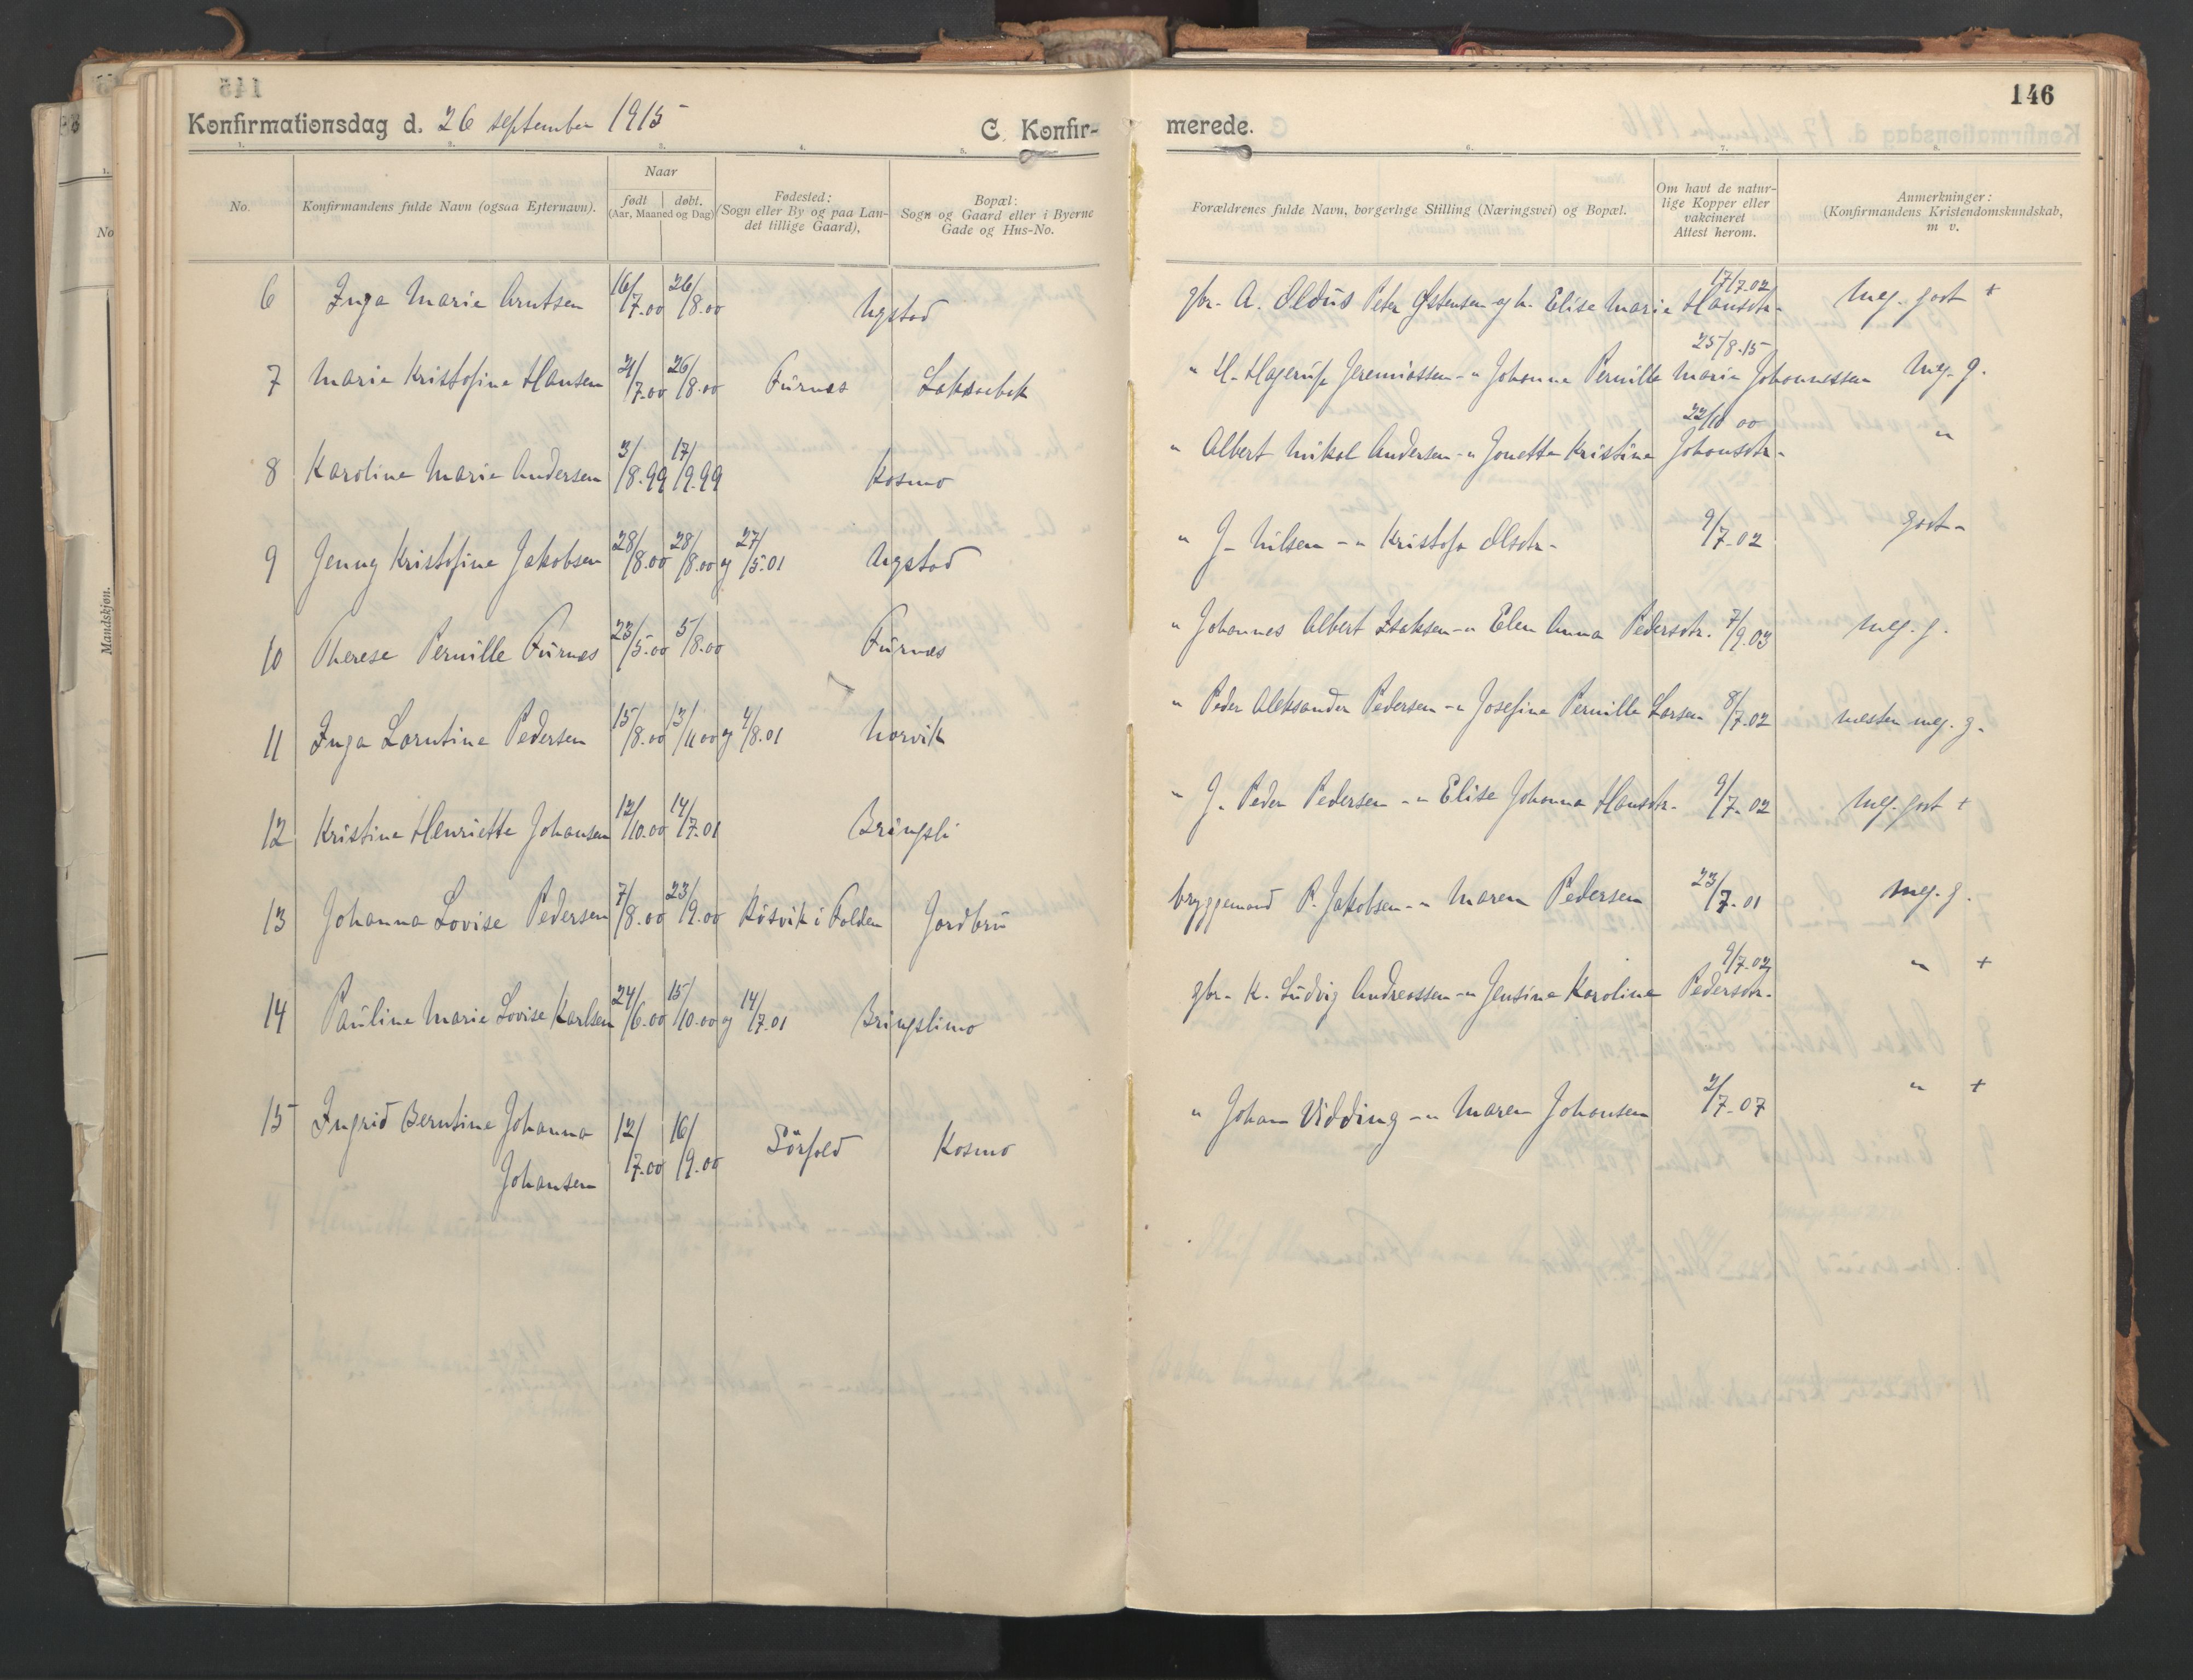 146
Konfirmationsdag d. 26 september 1915
C. Konfirmerede.
1. 2. 3. 4. 5. 6. 7. 8.
No.
Konfirmandens fulde Navn (ogsaa Efternavn).
Naar
født døbt.
(Aar, Maaned og Dag)
Fødested:
(Sogn eller By og paa Lan-
det tillige Gaard).
Bopæl:
Sogn og Gaard eller i Byerne
Gade og Hus-No.
Forældrenes fulde Navn, borgerlige Stilling (Næringsvei) og Bopæl.
Om havt de natur-
lige Kopper eller
vakcineret
Attest herom.
Anmerkninger:
(Konfirmandens Kristendomskundskab,
m v.
6 Inga Marie Arntsen 16/7.00 26/8.00 Ugstad gbr. A. Oldus Peter Østensen og h. Elise Marie Hansdtr. 17/7.02 Meg. godt +
7 Marie Kristofine Hansen 21/7.00 26/8.00 Furnes Laksaebek " H. Hagerup Jeremiassen - " Johanna Pernille Marie Johannessen 25/8.15 Meg. g.
8 Karoline Marie Andersen 3/8.99 17/9.99 Kosmo " Albert Mikal Andersen - " Jonette Kristine Johansdtr. 22/10 00 "
9 Jenny Kristofine Jakobsen 28/8.00 28/8.00 og 27/5.01 Ugstad " J. Nilsen - " Kristofa Olsdtr. 9/7.02 godt -
10 Therese Pernille Furnes 23/5.00 5/8.00 Furnes " Johannes Albert Isaksen - " Elen Anna Pedersdtr. 7/9.03 meg. g.
11 Inga Larntine Pedersen 15/8.00 13/11 00 og 4/8.01 Norvik " Peder Aleksander Pedersen - " Josefine Pernille Larsen 8/7.02 næsten meg. g.
12 Kristine Henriette Johansen 12/10.00 14/7.01 Bringsli " J. Peder Pedersen - " Elise Johanna Hansdtr. 9/7.02 Meg. godt +
13 Johanna Lovise Pedersen 7/8.00 23/9.00 Røsvik i Folden Jordbru bryggemand P. Jakobsen - " Maren Pedersen 23/7.01 meg. g.
14 Pauline Marie Lovise Karlsen 24/6.00 15/10.00 og 14/7.01 Bringslimo gbr. K. Ludvig Andreassen - " Jensine Karoline Pedersdtr. 9/7.02 " +
15 Ingrid Berntine Johanna
Johansen 12/7.00 16/9.00 Sørfold Kosmo " Johan Vidding - " Maren Johansen 2/7.07 " +
No
Mandskjøn.